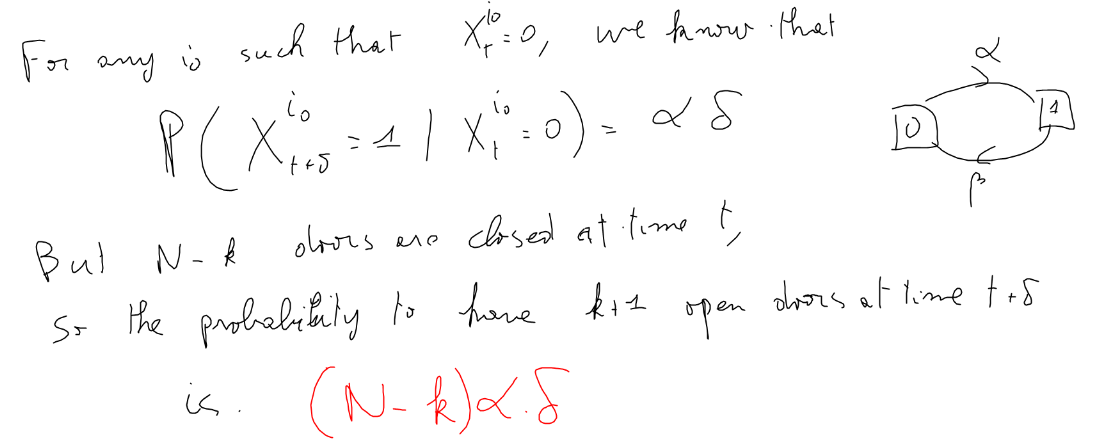 For any i₀ such that X_t^{i₀} = 0, we know that
P( X_{t+δ}^{i₀} = 1 | X_t^{i₀} = 0 ) = α δ
α
0 1
β
But N - k doors are closed at time t,
So the probability to have k+1 open doors at time t+δ
is. (N - k) α . δ